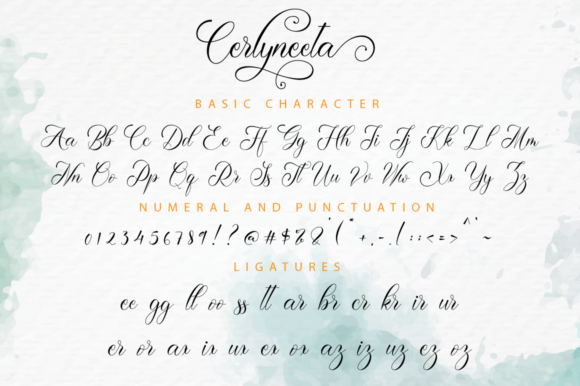 Cerlyneeta
BASIC CHARACTER
Aa Bb Cc Dd Ee Ff Gg Hh Ii Jj Kk Ll Mm
Nn Oo Pp Qq Rr Ss Tt Uu Vv Ww Xx Yy Zz
NUMERAL AND PUNCTUATION
0123456789!?@#$%&'("+,-.(:;<=>^`~
LIGATURES
ee gg ll oo ss tt ar br cr kr ir ur
er or as is us es os az iz uz ez oz